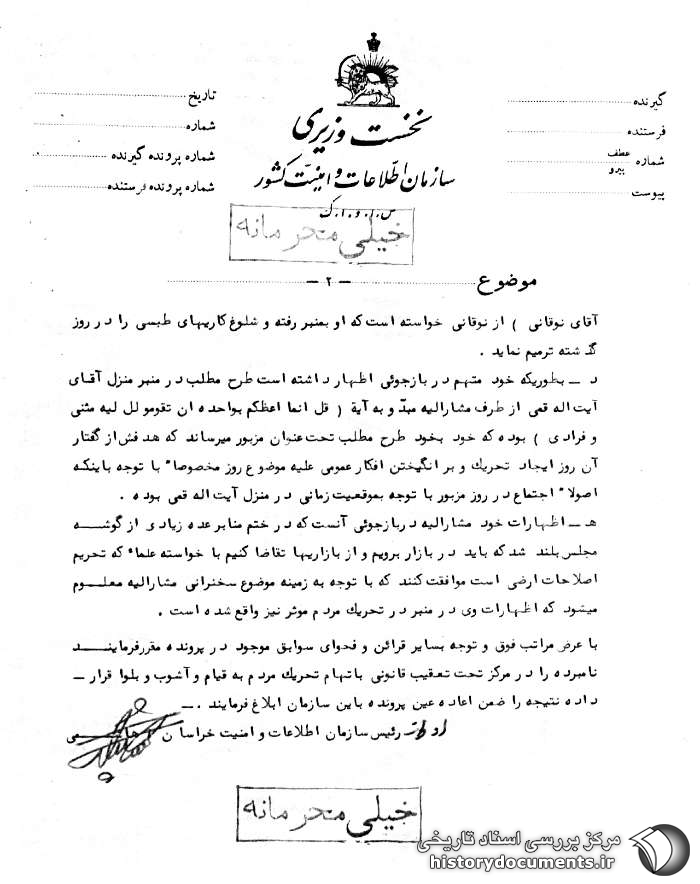 نخست وزیری
سازمان اطلاعات و امنیت کشور
س.ا.و.ا.ک
گیرنده
فرستنده
شماره عطف پیرو
پیوست
تاریخ
شماره
شماره پرونده گیرنده
شماره پرونده فرستنده
خیلی محرمانه
موضوع ـ ۲ ـ
آقای نوقانی ) از نوقانی خواسته است که او بمنبر رفته و شلوغ کاریهای طبسی را در روز
گذشته ترمیم نماید .
د ـ بطوریکه خود متهم در بازجوئی اظهار داشته است طرح مطلب در منبر منزل آقای
آیت اله قمی از طرف مشارالیه مبدّ و به آیة ( قل انما اعظکم بواحده ان تقومولل لیه مثنی
و فرادی ) بوده که خود بخود طرح مطلب تحت عنوان مزبور میرساند که هدفش از گفتار
آن روز ایجاد تحریک و بر انگیختن افکار عمومی علیه موضوع روز مخصوصا" با توجه باینکه
اصولا" اجتماع در روز مزبور با توجه بموقعیت زمانی در منزل آیت اله قمی بوده .
هـ ـ اظهارات خود مشارالیه در بازجوئی آنست که در ختم منابر عده زیادی از گوشه
مجلس بلند شد که باید در بازار برویم و از بازاریها تقاضا کنیم با خواسته علماء که تحریم
اصلاحات ارضی است موافقت کنند که با توجه به زمینه موضوع سخنرانی مشارالیه معلوم
میشود که اظهارات وی در منبر در تحریک مردم موثر نیز واقع شده است .
با عرض مراتب فوق و توجه بسایر قرائن و فحوای سوابق موجود در پرونده مقرر فرمایند
نامبرده را در مرکز تحت تعقیب قانونی باتهام تحریک مردم به قیام و آشوب و بلوا قرار ـ
داده نتیجه را ضمن اعاده عین پرونده باین سازمان ابلاغ فرمایند . ـ
رئیس سازمان اطلاعات و امنیت خراسان
خیلی محرمانه
مرکز بررسی اسناد تاریخی
historydocuments.ir